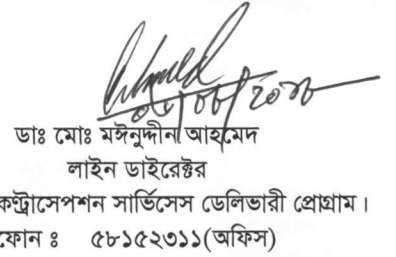 ডাঃ মোঃ মঈনুদ্দীন আহমেদ
লাইন ডাইরেক্টর
কন্ট্রাসেপশন সার্ভিসেস ডেলিভারী প্রোগ্রাম।
ফোন ঃ ৫৮১৫২৩১১(অফিস)